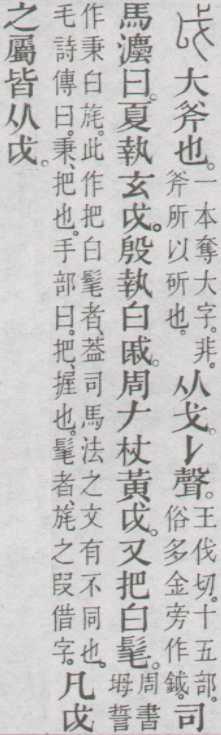 戉大斧也。一本奪大字。非。斧所以斫也。从戈𠄌聲。王伐切。十五部。俗多金旁作鉞。司
馬灋曰。夏執玄戉。殷執白戚。周𠂇杖黃戉。又把白髦。周書坶誓
作秉白旄。此作把白髦者、葢司馬法之文有不同也。毛詩傳曰。秉、把也。手部曰。把、握也。髦者、旄之叚借字。凡戉
之屬皆从戉。